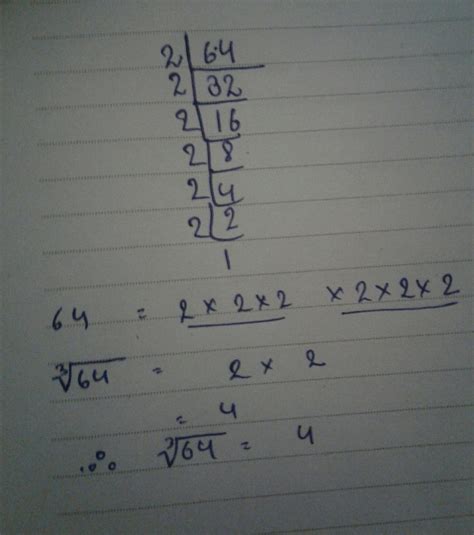 2 | 64
2 | 32
2 | 16
2 | 8
2 | 4
2 | 2
1
64 = 2 × 2 × 2 × 2 × 2 × 2
∛64 = 2 × 2
= 4
∴ ∛64 = 4